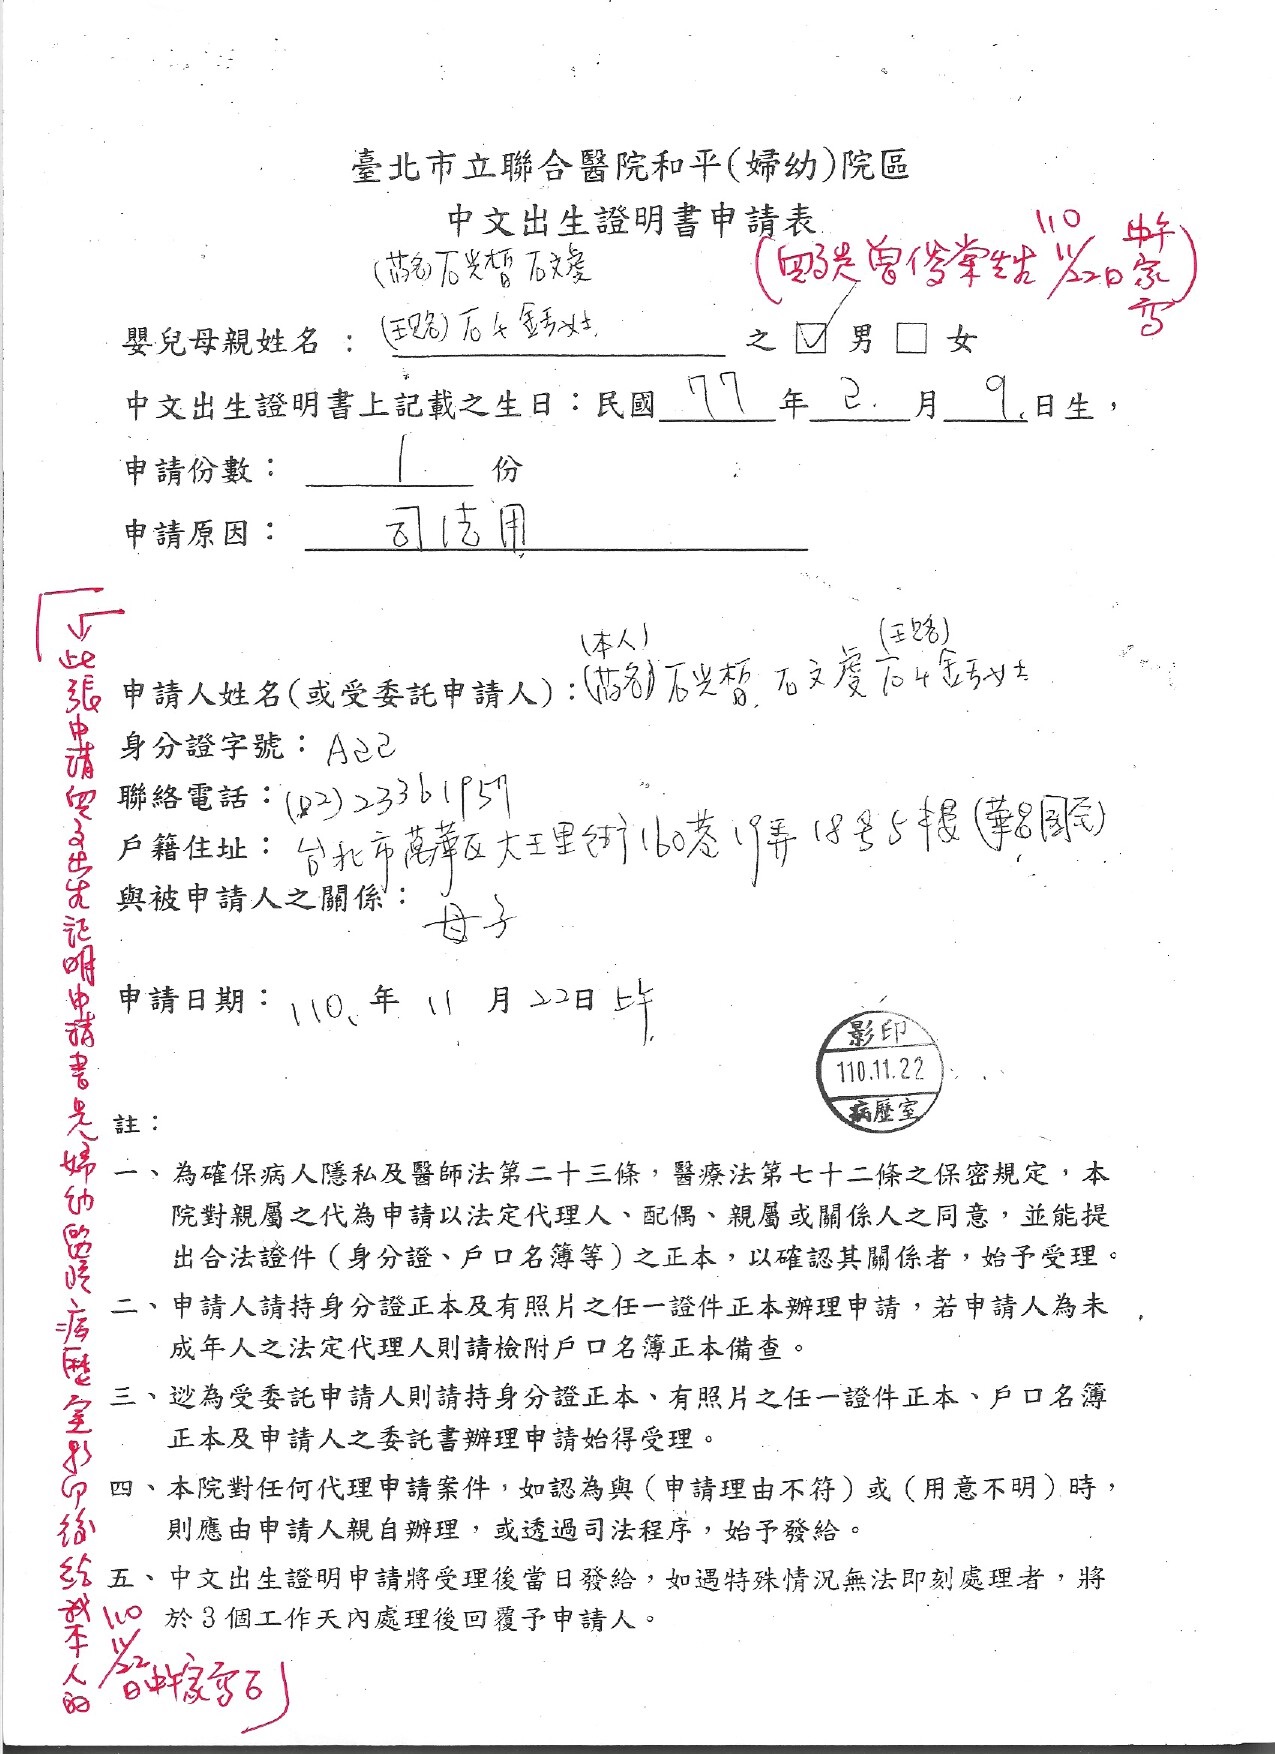 臺北市立聯合醫院和平(婦幼)院區
中文出生證明書申請表
110
11/22日
嬰兒母親姓名：
之 ☑ 男 □ 女
中文出生證明書上記載之生日：民國 77 年 2 月 9 日生，
申請份數： 1 份
申請原因： 司法用
(本人)
申請人姓名(或受委託申請人)：石文慶
身分證字號：A22
聯絡電話：(02)23361957
戶籍住址：台北市萬華區大王里街160巷19弄18号5樓(華昌國宅)
與被申請人之關係：母子
申請日期：110年11月22日上午
影印
110.11.22
病歷室
註：
一、為確保病人隱私及醫師法第二十三條，醫療法第七十二條之保密規定，本
院對親屬之代為申請以法定代理人、配偶、親屬或關係人之同意，並能提
出合法證件（身分證、戶口名簿等）之正本，以確認其關係者，始予受理。
二、申請人請持身分證正本及有照片之任一證件正本辦理申請，若申請人為未
成年人之法定代理人則請檢附戶口名簿正本備查。
三、逊為受委託申請人則請持身分證正本、有照片之任一證件正本、戶口名簿
正本及申請人之委託書辦理申請始得受理。
四、本院對任何代理申請案件，如認為與（申請理由不符）或（用意不明）時，
則應由申請人親自辦理，或透過司法程序，始予發給。
五、中文出生證明申請將受理後當日發給，如遇特殊情況無法即刻處理者，將
於3個工作天內處理後回覆予申請人。
此張申請四文出生証明申請書是婦幼醫院病歷室影印後給我本人的
110
11/22日中午家寫